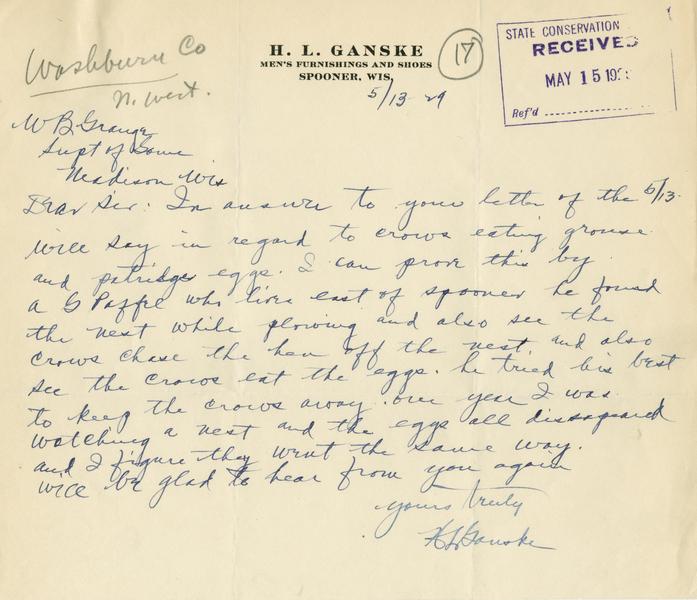 Washburn Co
N. West.
H. L. GANSKE
MEN'S FURNISHINGS AND SHOES
SPOONER, WIS.
17
5/13-29
STATE CONSERVATION
RECEIVED
MAY 15 19
Ref'd
W B Grange
Supt of Game
Madison Wis
Dear Sir: In answer to your letter of the 5/13-
will say in regard to crows eating grouse
and patridge eggs. I can prove this by
a G Paffel who lives east of spooner he found
the nest while plowing and also see the
crows chase the hen off the nest, and also
see the crows eat the eggs. he tried his best
to keep the crows away. one year I was
watching a nest and the eggs all dissapeared
and I figure they went the same way.
will be glad to hear from you again
yours truly
H L Ganske